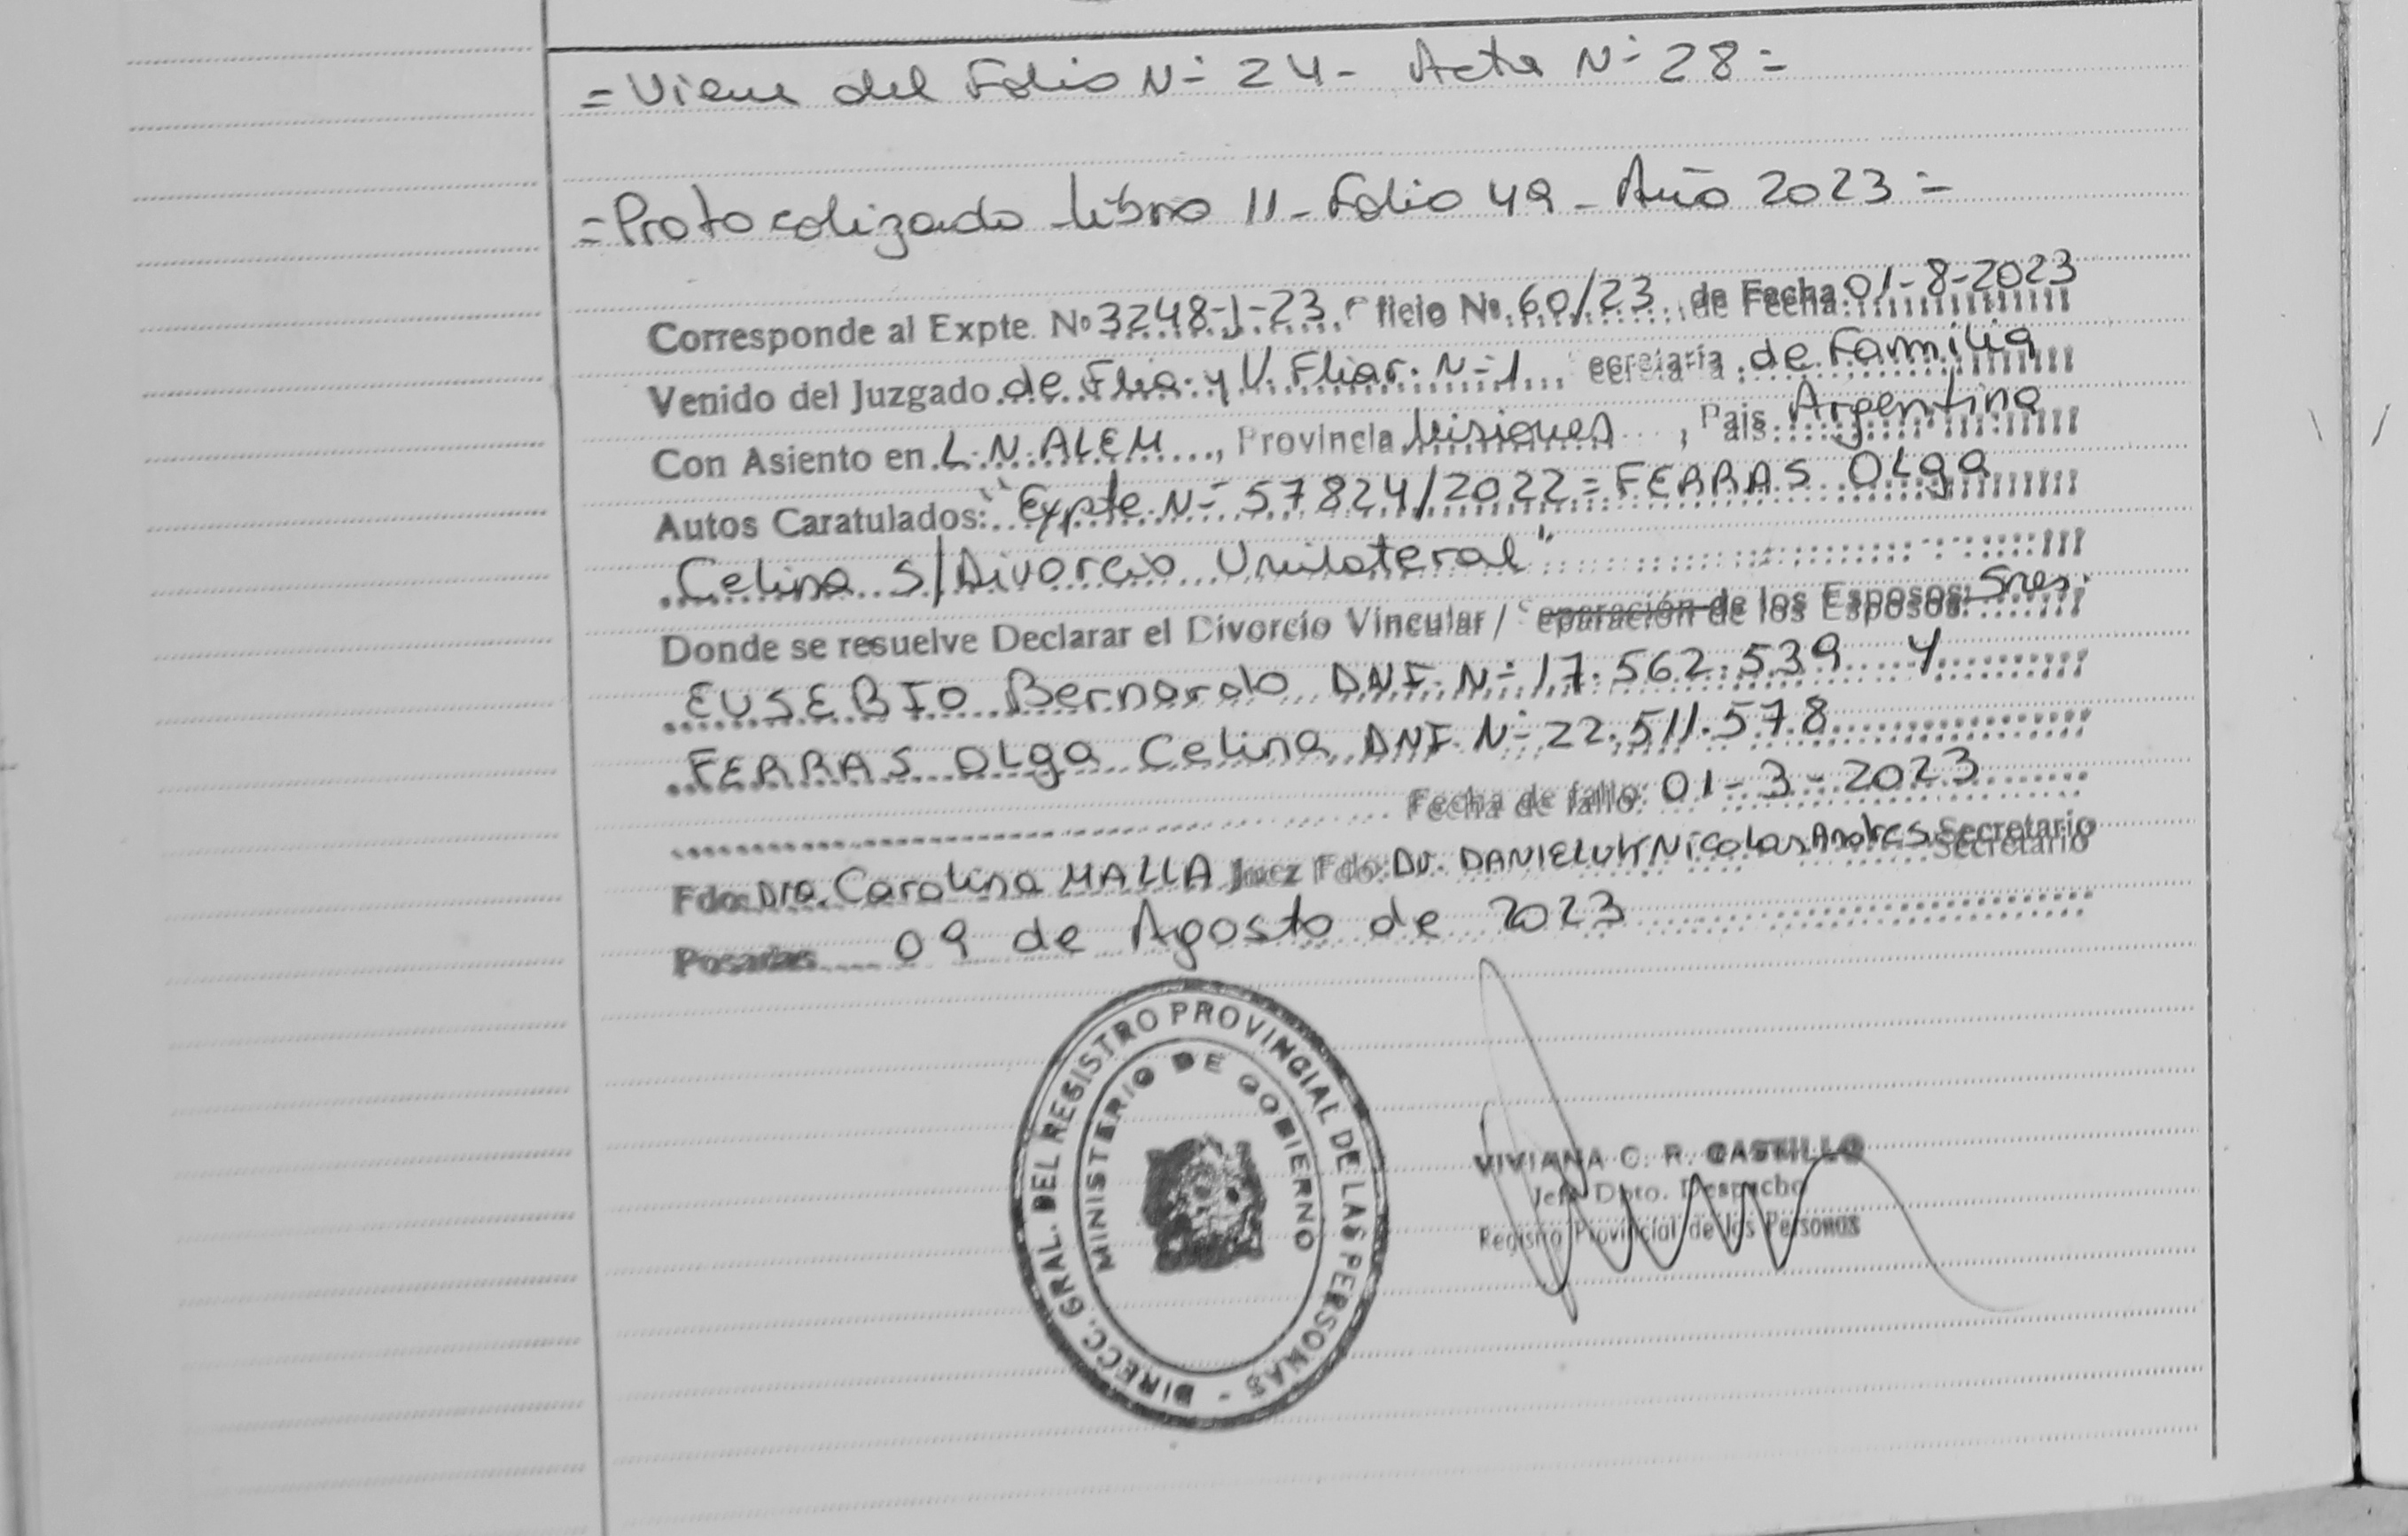 = Viene del Folio N- 24 - Acta N- 28 =
= Protocolizado Libro 11 - Folio 49 - Año 2023 =
Corresponde al Expte. Nº 3248-J-23. ficio Nº. 60/23 de Fecha 01-8-2023
Venido del Juzgado de Flia. y V. Fliar. N-1 ecretaría de Familia
Con Asiento en L.N. ALEM, Provincia Misiones, Pais Argentina
Autos Caratulados: "Expte N- 57824/2022 = FERRAS OLga
Celina S/Divorcio Unilateral"
Donde se resuelve Declarar el Divorcio Vincular / eparación de los Esposos: Sres.
EUSEBIO Bernardo DNI. N- 17.562.539 y
FERRAS OLga Celina DNI. N- 22.511.578
Fecha de fallo: 01-3-2023
Fdo: Dra. Carolina MALLA Juez Fdo: Dr. Nicolas Andres Secretario
Posadas 09 de Agosto de 2023
DIRECC. GRAL. DEL REGISTRO PROVINCIAL DE LAS PERSONAS -
MINISTERIO DE GOBIERNO
VIVIANA C. R. CASTILLO
Jefe Dpto. Despacho
Registro Provincial de las Personas